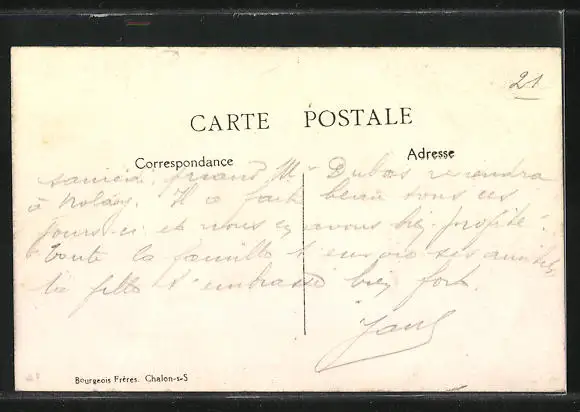 21
CARTE POSTALE
Correspondance
Adresse
samedi, quand Mr Dubois reviendra
à Nolay. Il a fait beau tous ces
jours-ci et nous en avons bien profité.
Toute la famille t'envoie ses amitiés
ta fille t'embrasse bien fort.
Bourgeois Frères. Chalon-s-S